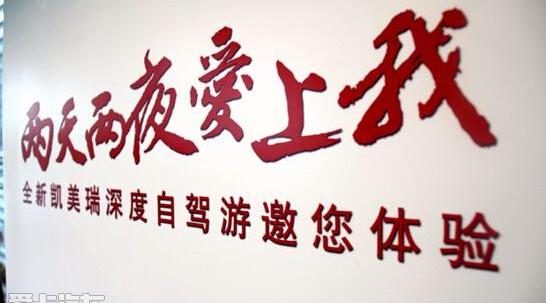 两天两夜愛上我
全新凯美瑞深度自驾游邀您体验
爱卡汽车